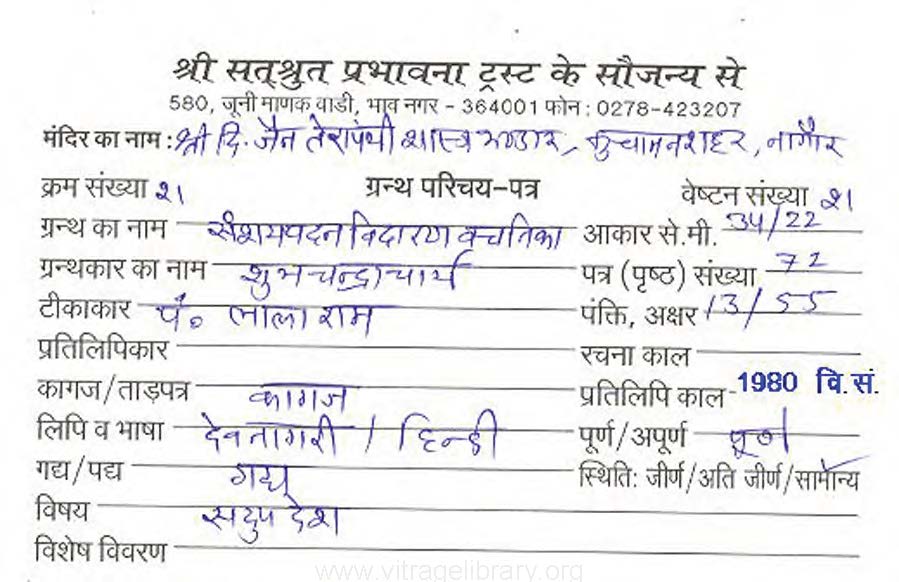 श्री सत्श्रुत प्रभावना ट्रस्ट के सौजन्य से
580, जूनी माणक वाडी, भाव नगर - 364001 फोन : 0278-423207
मंदिर का नाम : श्री दि. जैन तेरापंथी शास्त्र भण्डार, कुचामनशहर, नागौर
क्रम संख्या २१ ग्रन्थ परिचय-पत्र वेष्टन संख्या २१
ग्रन्थ का नाम संशयवदनविदारण वचनिका आकार से.मी. 34/22
ग्रन्थकार का नाम शुभचन्द्राचार्य पत्र (पृष्ठ) संख्या 72
टीकाकार पं० लालाराम पंक्ति, अक्षर 13/55
प्रतिलिपिकार रचना काल
कागज/ताड़पत्र कागज प्रतिलिपि काल- 1980 वि.सं.
लिपि व भाषा देवनागरी / हिन्दी पूर्ण/अपूर्ण पूर्ण
गद्य/पद्य गद्य स्थिति: जीर्ण/अति जीर्ण/सामान्य
विषय सदुपदेश
विशेष विवरण
www.vitragelibrary.org